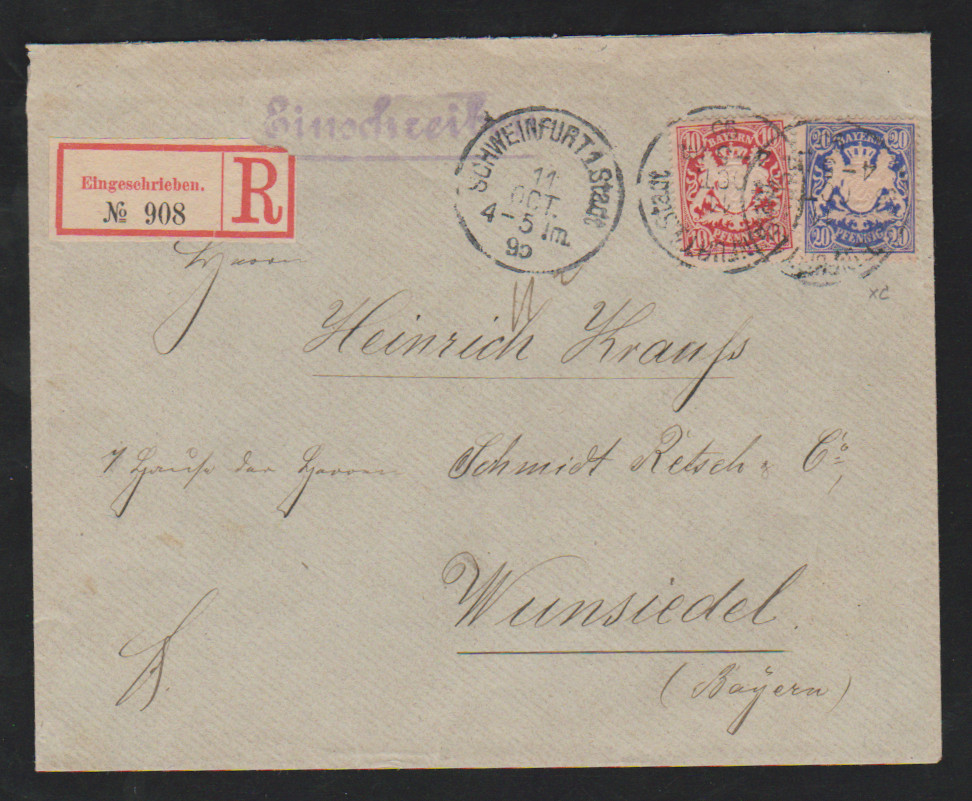 Einschreib
Eingeschrieben.
№ 908
R
SCHWEINFURT 1. Stadt
11
OCT.
4-5 Nm.
95
10 BAYERN 10
10 PFENNIG 10
20 BAYERN 20
20 PFENNIG 20
Herrn
Heinrich Krauß
i/ Hause der Herren Schmidt Retsch & Co,
Wunsiedel.
(Bayern)